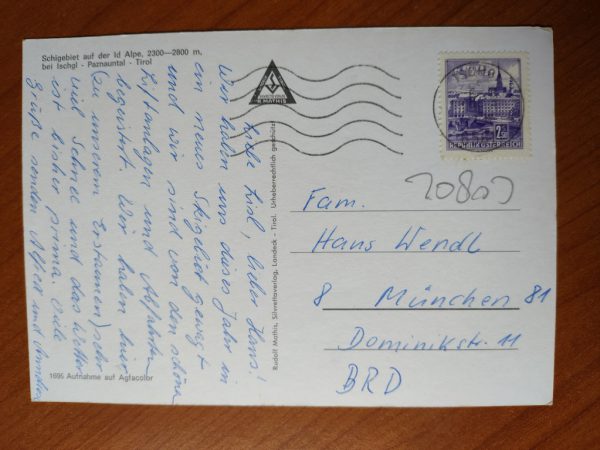 Schigebiet auf der Id Alpe, 2300—2800 m,
bei Ischgl - Paznauntal - Tirol
Liebe Lisl, lieber Hans!
Wir haben uns dieses Jahr in
ein neues Skigebiet gewagt
und wir sind von den schönen
Liftanlagen und Abfahrten
begeistert. Wir haben hier
(zu unserem Erstaunen) sehr
viel Schnee und das Wetter
ist bisher prima. Viele
Grüße senden Alfred und
1695 Aufnahme auf Agfacolor
R. MATHIS
Rudolf Mathis, Silvrettaverlag, Landeck - Tirol. Urheberrechtlich geschützt
2.50
REPUBLIK ÖSTERREICH
Fam.
Hans Wendl
8 München 81
Dominikstr. 11
BRD